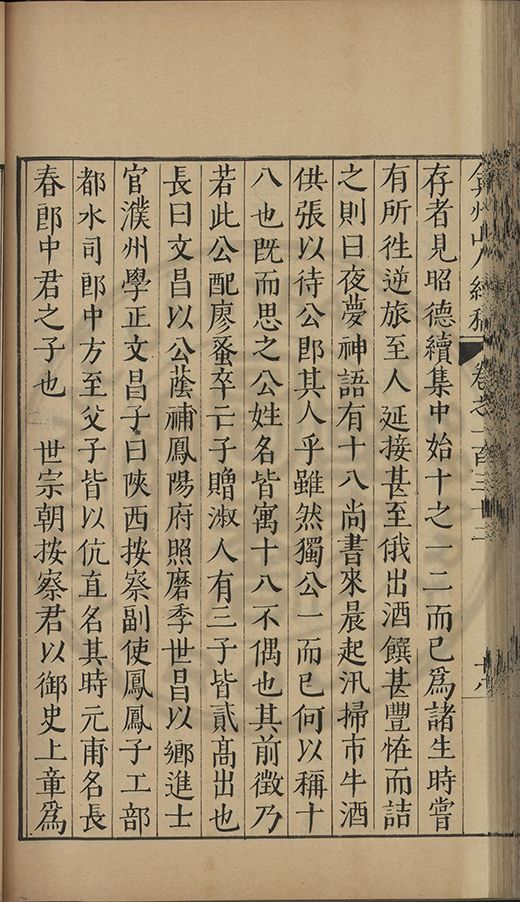 弇州山人續稿 卷之一百三十二 十八
存者見昭德續集中始十之一二而已爲諸生時嘗
有所徃逆旅至人延接甚至俄出酒饌甚豐恠而詰
之則曰夜夢神語有十八尚書來晨起汛掃市牛酒
供張以待公卽其人乎雖然獨公一而已何以稱十
八也旣而思之公姓名皆寓十八不偶也其前徵乃
若此公配廖蚤卒亡子贈淑人有三子皆貳高出也
長曰文昌以公蔭補鳳陽府照磨季世昌以鄉進士
官濮州學正文昌子曰陝西按察副使鳳鳳子工部
都水司郎中方至父子皆以伉直名其時元甫名長
春郎中君之子也 世宗朝按察君以御史上章爲